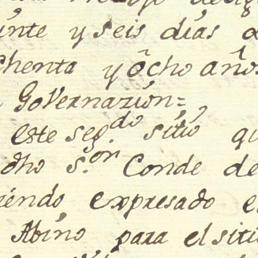 inte y seis dias d
chenta y ôcho años
Governazion=
este seg.do sitio qu
dho s.or Conde de
iendo expresado e
Abino para el siti